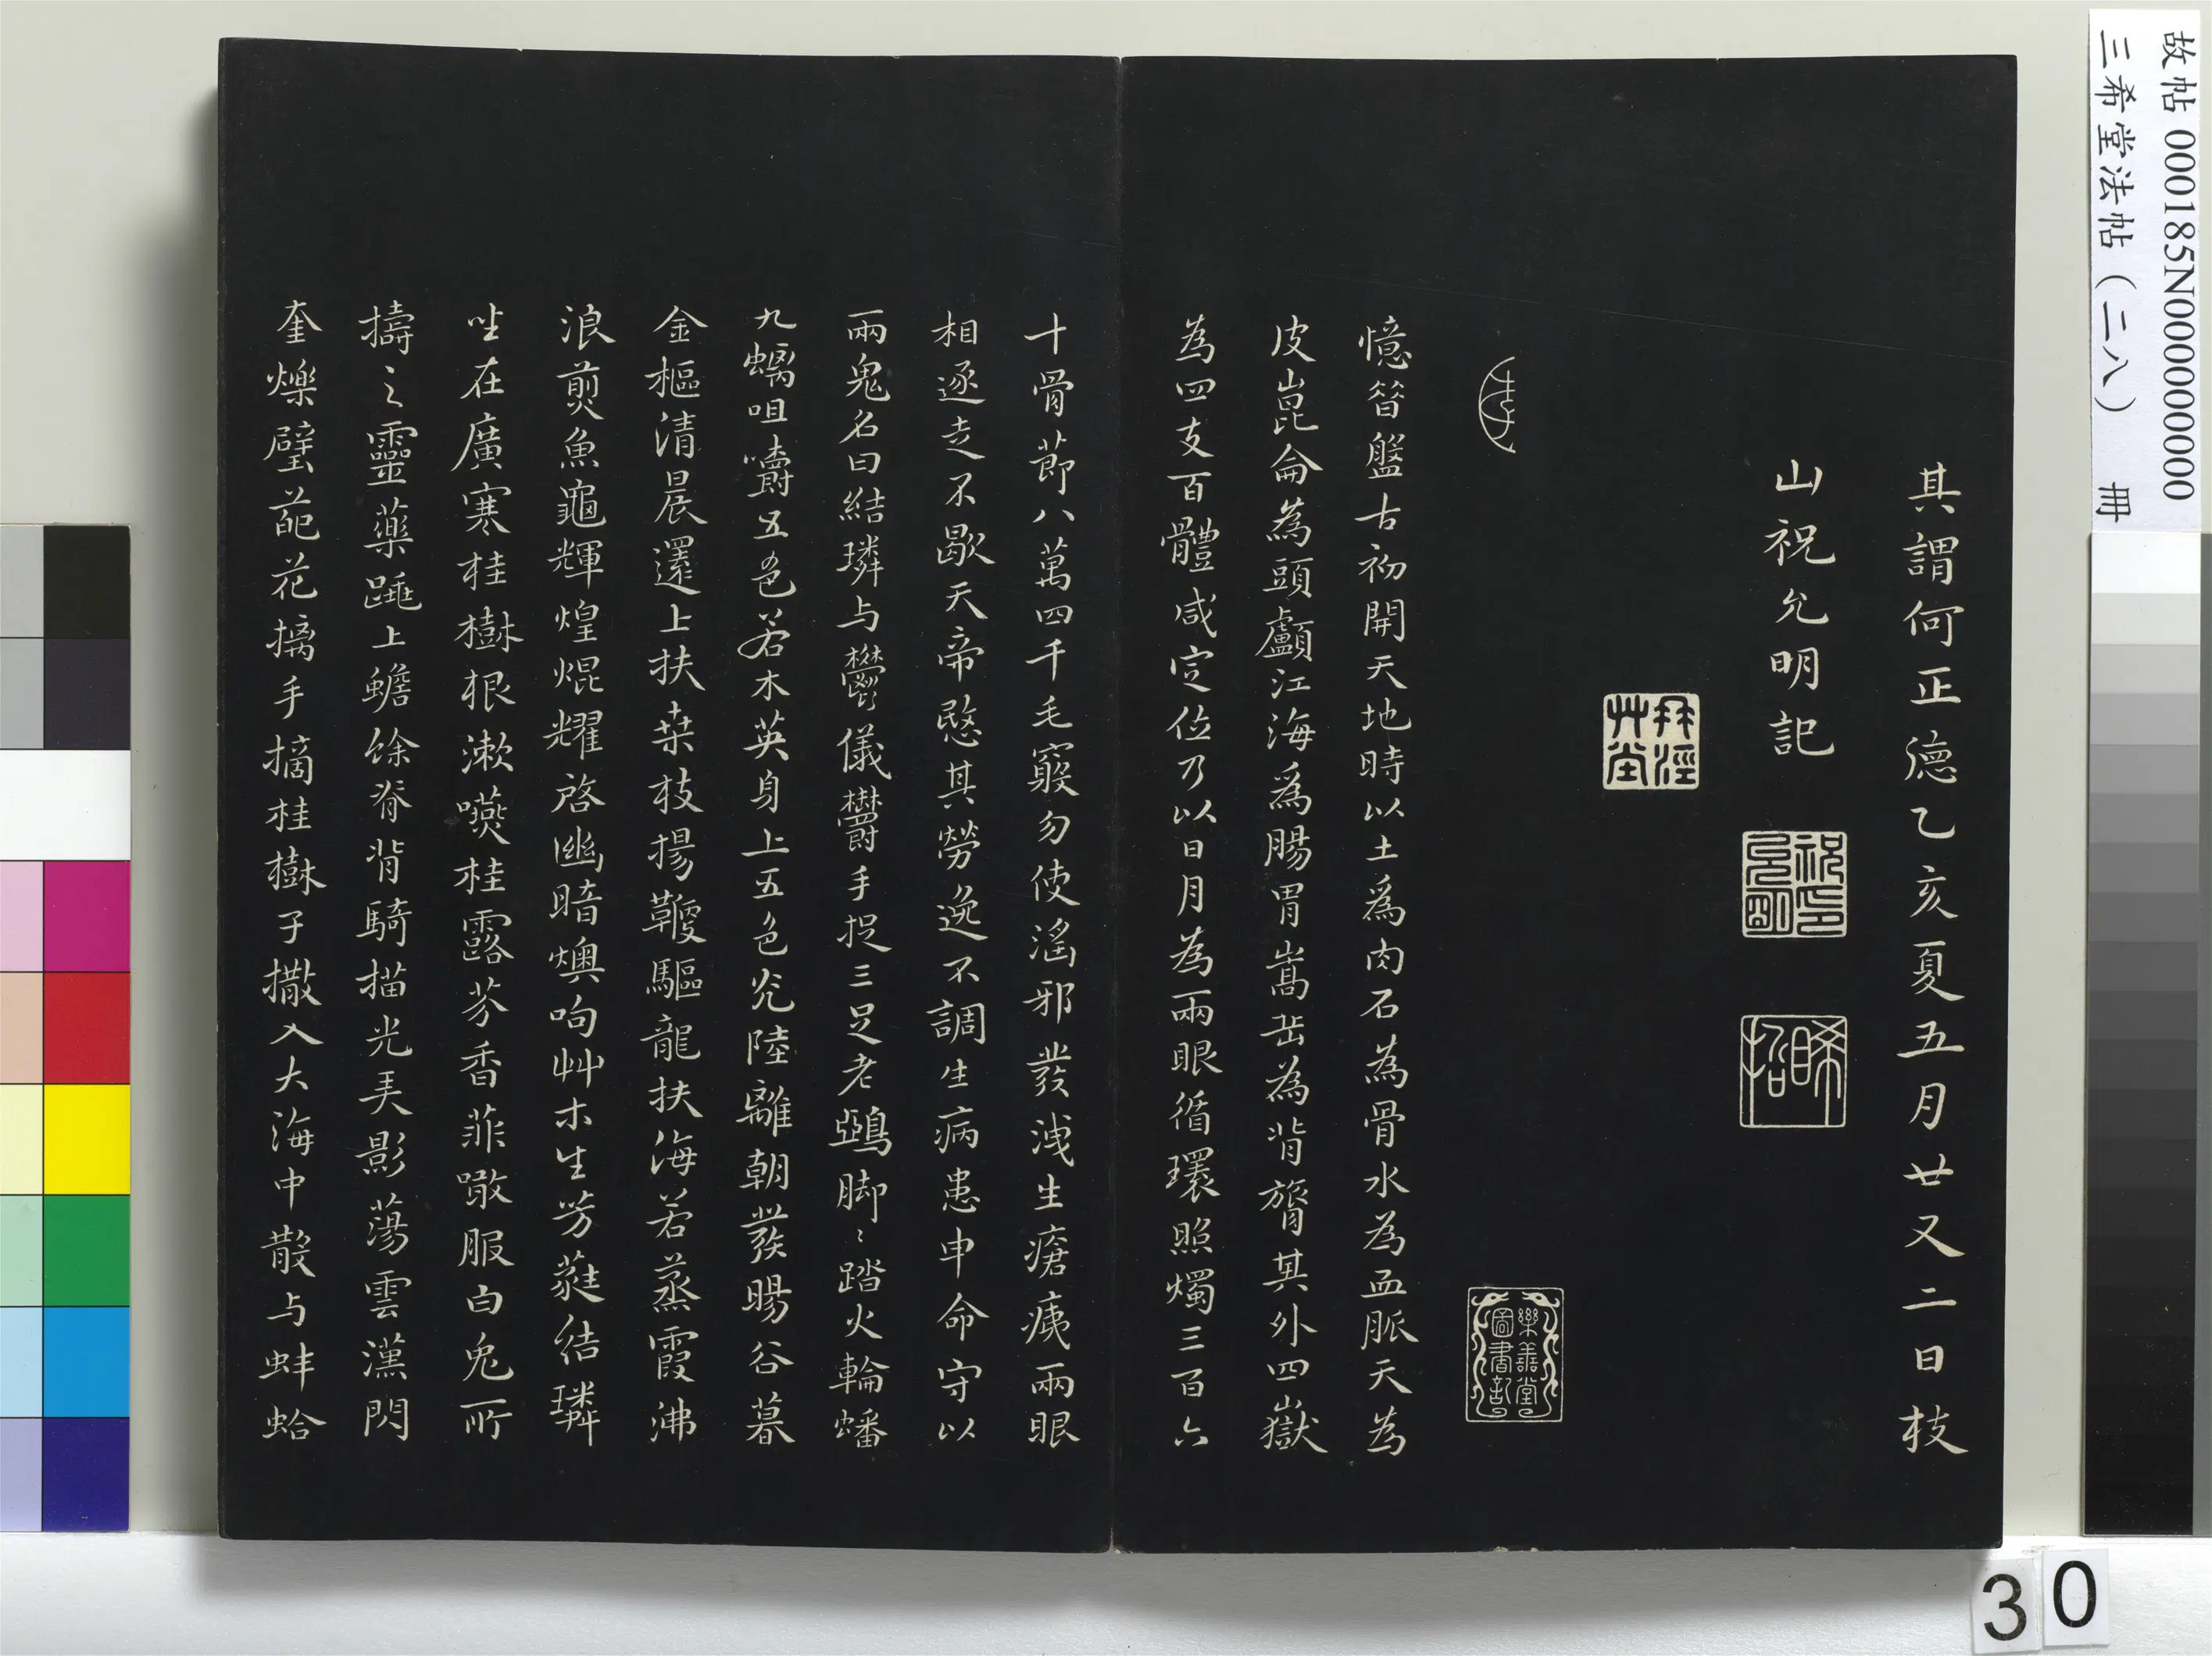 故帖 000185N000000000
三希堂法帖（二八） 冊
其謂何正德乙亥夏五月廿又二日枝
山祝允明記
憶昔盤古初開天地時以土為肉石為骨水為血脈天為
皮崑侖為頭顱江海為腸胃嵩岳為背膂其外四嶽
為四支百體咸定位乃以日月為兩眼循環照燭三百六
十骨節八萬四千毛竅勿使淫邪發洩生瘡痍兩眼
相逐走不歇天帝愍其勞逸不調生病患申命守以
兩鬼名曰結璘与鬱儀鬱手捉三足老鵶脚〻踏火輪蟠
九螭咀嚼五色若木英身上五色光陸離朝發暘谷暮
金樞清晨還上扶桒枝揚鞭驅龍扶海若蒸霞沸
浪煎魚龜輝煌焜耀啓幽暗燠呴艸木生芳蕤結璘
坐在廣寒桂樹根漱嚥桂露芬香菲噉服白兔所
擣之靈藥踏上蟾蜍脊背騎描光弄影蕩雲漢閃
奎爍璧葩花摛手摘桂樹子撒入大海中散与蚌蛤
樂善堂圖書記
30